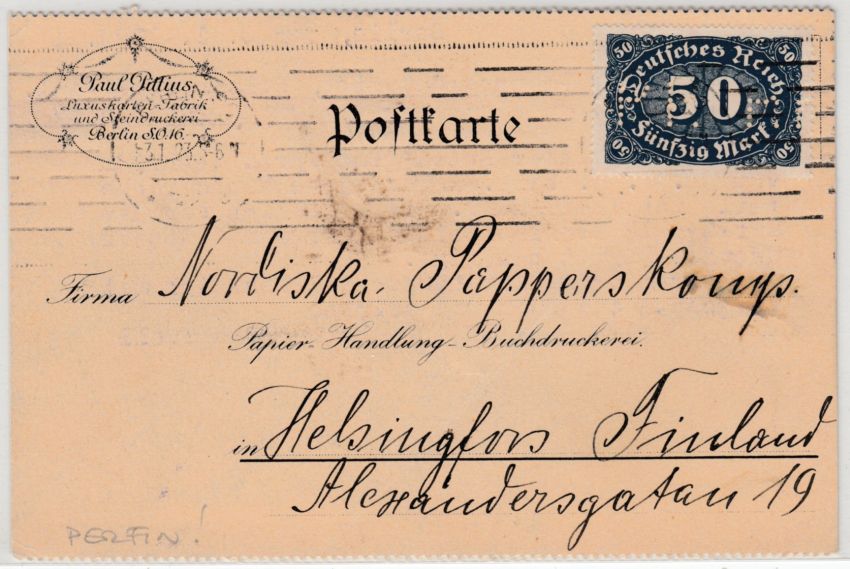 Paul Pittius
Luxuskarten-Fabrik
und Steindruckerei
Berlin S.O.16.
Postkarte
50 50
Deutsches Reich
50
Fünfzig Mark
50 50
Firma Nordiska Papperskomp.
Papier-Handlung-Buchdruckerei.
in Helsingfors Finland
Alexandersgatan 19
PERFIN!